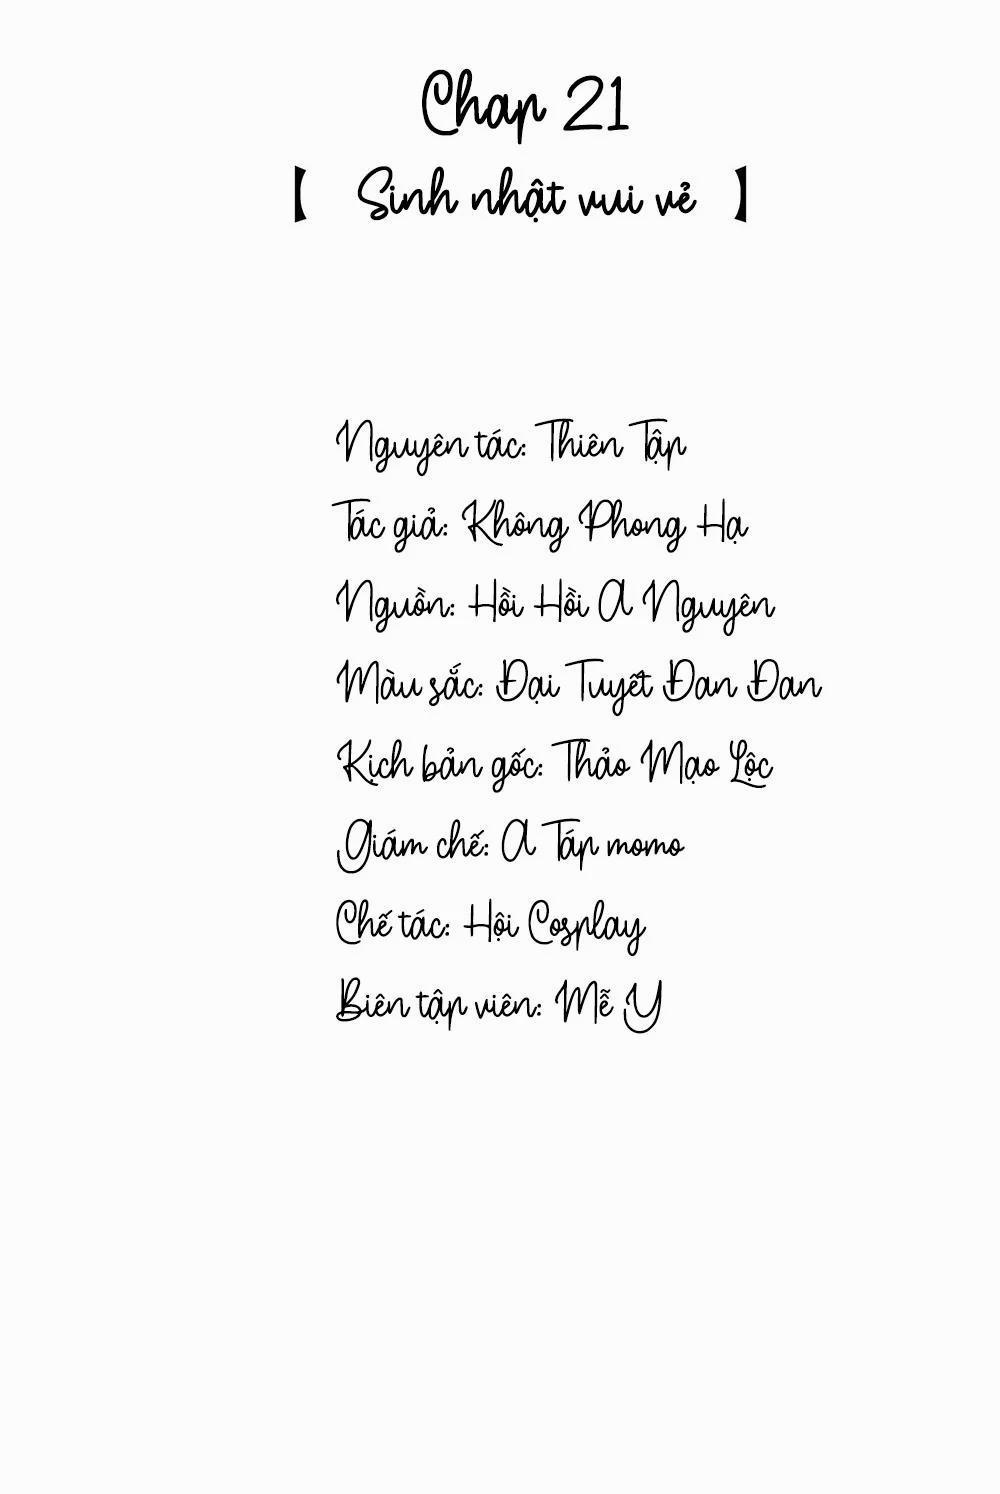 Chap 21
【 Sinh nhật vui vẻ 】
Nguyên tác: Thiên Tập
Tác giả: Không Phong Hạ
Nguồn: Hồi Hồi A Nguyên
Màu sắc: Đại Tuyết Đan Đan
Kịch bản gốc: Thảo Mạo Lộc
Giám chế: A Táp momo
Chế tác: Hội Cosplay
Biên tập viên: Mễ Y